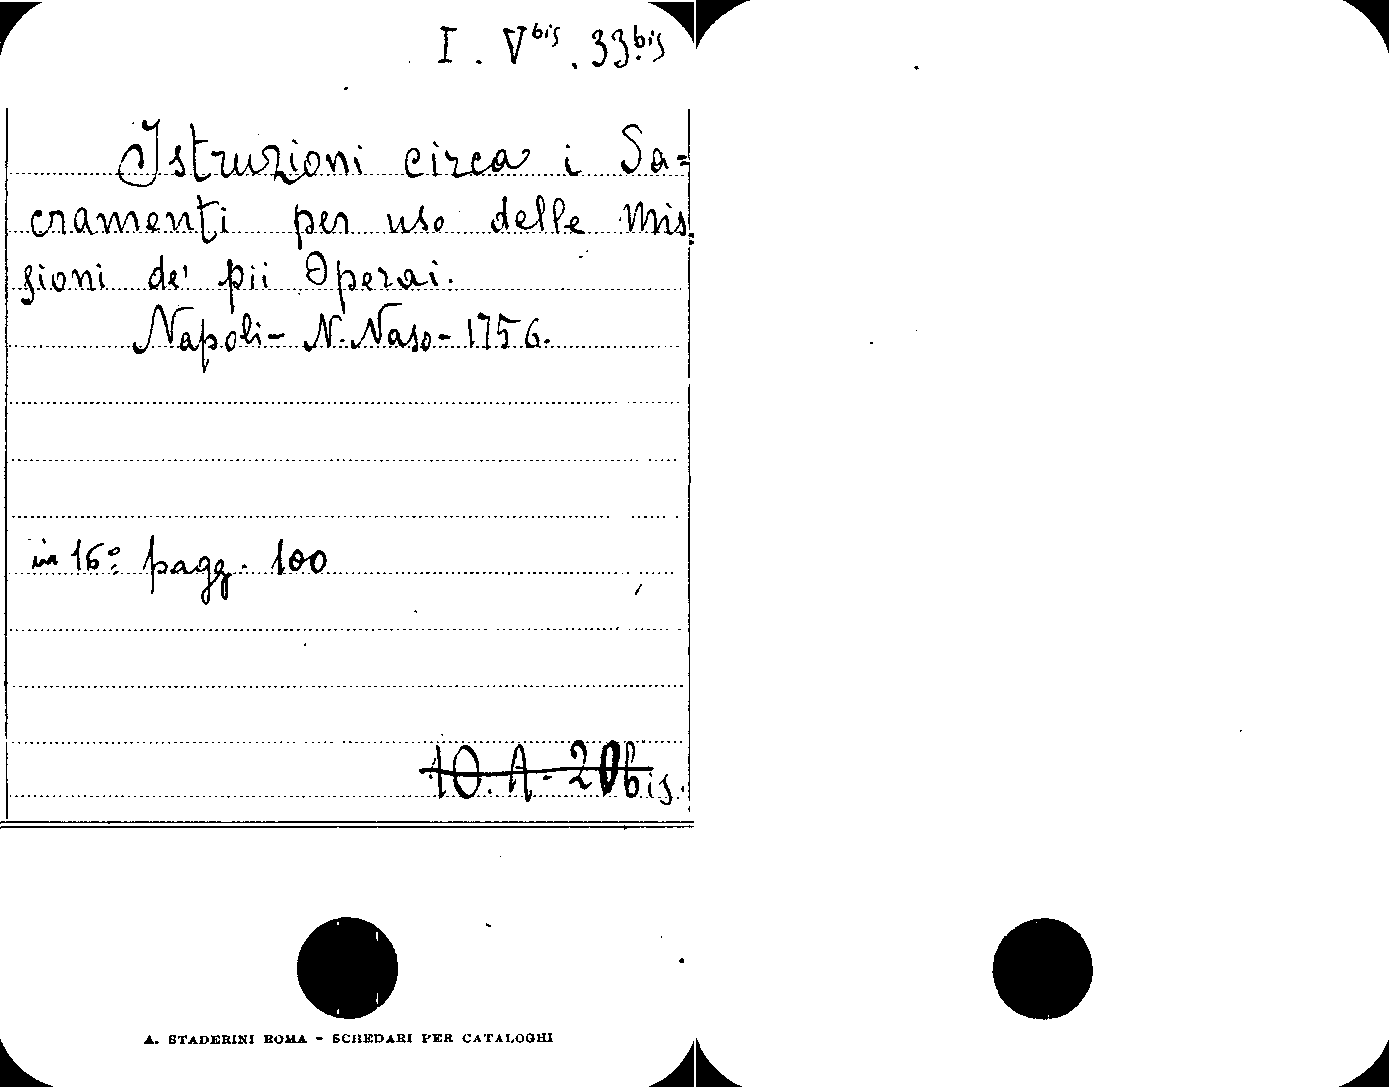 I. V bis. 33 bis
Istruzioni circa i Sa=
cramenti per uso delle Mis=
sioni de' pii Operai.
Napoli - N. Naso - 1756.
in 16º: pagg. 100
10. A - 20 bis.
A. STADERINI ROMA - SCHEDARI PER CATALOGHI